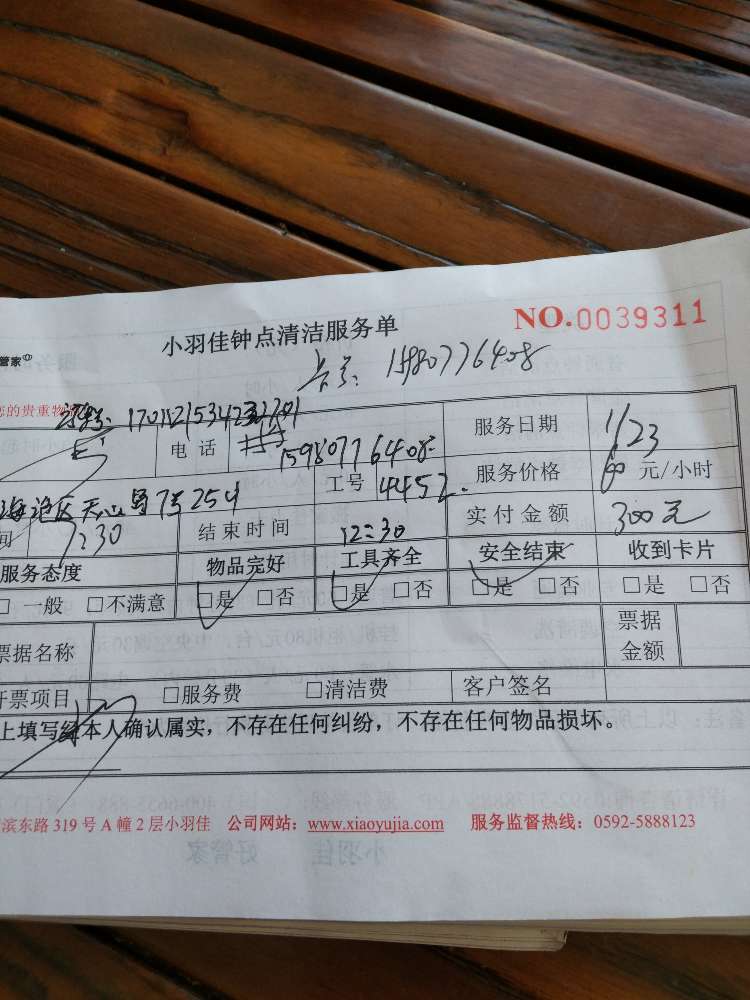 小羽佳钟点清洁服务单 NO.0039311
管家 卡号: 15980776408
您的贵重物
电话 15980776408 服务日期 1/23
海沧区天心岛7号254 工号 4452. 服务价格 60 元/小时
间 7:30 结束时间 12:30 实付金额 300元
服务态度 物品完好 工具齐全 安全结束 收到卡片
□一般 □不满意 □是 □否 □是 □否 □是 □否 □是 □否
票据名称 票据金额
开票项目 □服务费 □清洁费 客户签名
上填写经本人确认属实，不存在任何纠纷，不存在任何物品损坏。
滨东路319号A幢2层小羽佳 公司网站：www.xiaoyujia.com 服务监督热线：0592-5888123